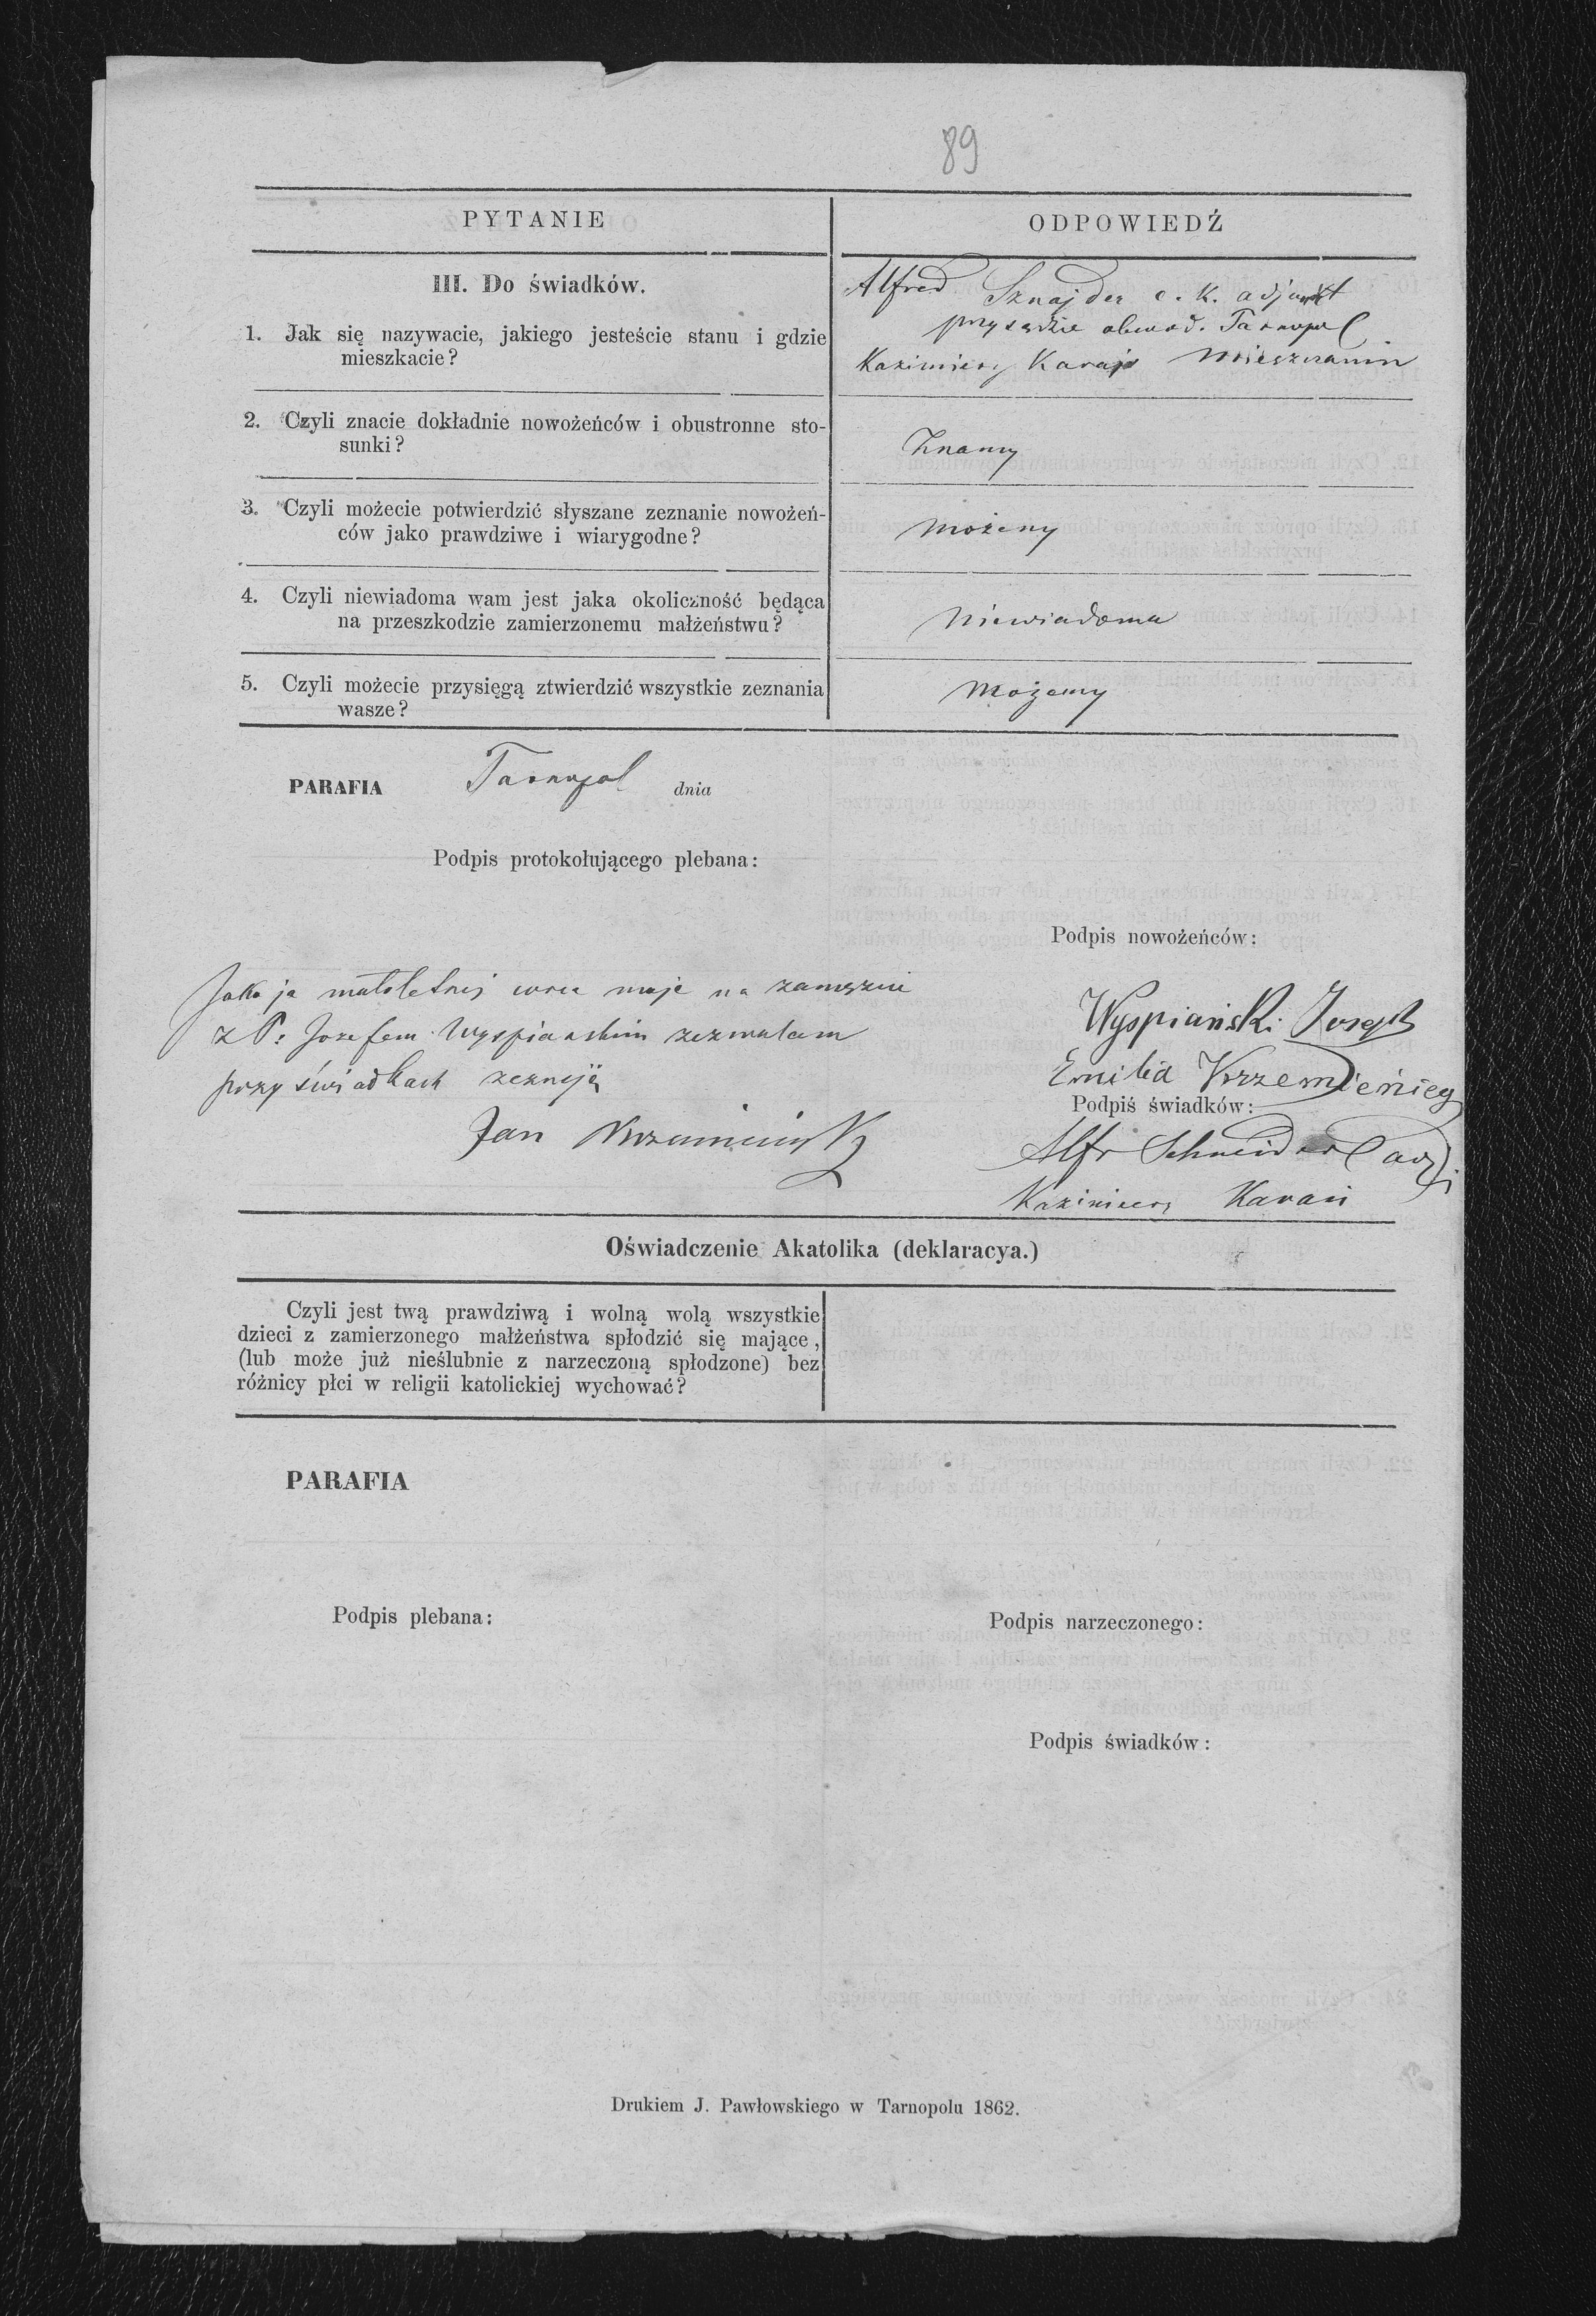 89
PYTANIE
ODPOWIEDŹ
III. Do świadków.
1. Jak się nazywacie, jakiego jesteście stanu i gdzie
mieszkacie?
Alfred Sznajder c. k. adjunkt
przy sądzie obwod. Tarnopol
Kazimierz Karaś Mieszczanin
2. Czyli znacie dokładnie nowożeńców i obustronne sto-
sunki?
Znamy
3. Czyli możecie potwierdzić słyszane zeznanie nowożeń-
ców jako prawdziwe i wiarygodne?
możemy
4. Czyli niewiadoma wam jest jaka okoliczność będąca
na przeszkodzie zamierzonemu małżeństwu?
Niewiadoma
5. Czyli możecie przysięgą ztwierdzić wszystkie zeznania
wasze?
możemy
PARAFIA Tarnopol dnia
Podpis protokołującego plebana:
Podpis nowożeńców:
Jako ja małoletniej moje na zamęzcie
z P: Jozefem Wyspianskim zezwalam
przy świadkach zeznaję
Jan
Wyspiański Josef
Emilia
Podpiś świadków:
Alfr Schneider adj
Kazimierz
Oświadczenie Akatolika (deklaracya.)
Czyli jest twą prawdziwą i wolną wolą wszystkie
dzieci z zamierzonego małżeństwa spłodzić się mające,
(lub może już nieślubnie z narzeczoną spłodzone) bez
różnicy płci w religii katolickiej wychować?
PARAFIA
Podpis plebana:
Podpis narzeczonego:
Podpis świadków:
Drukiem J. Pawłowskiego w Tarnopolu 1862.